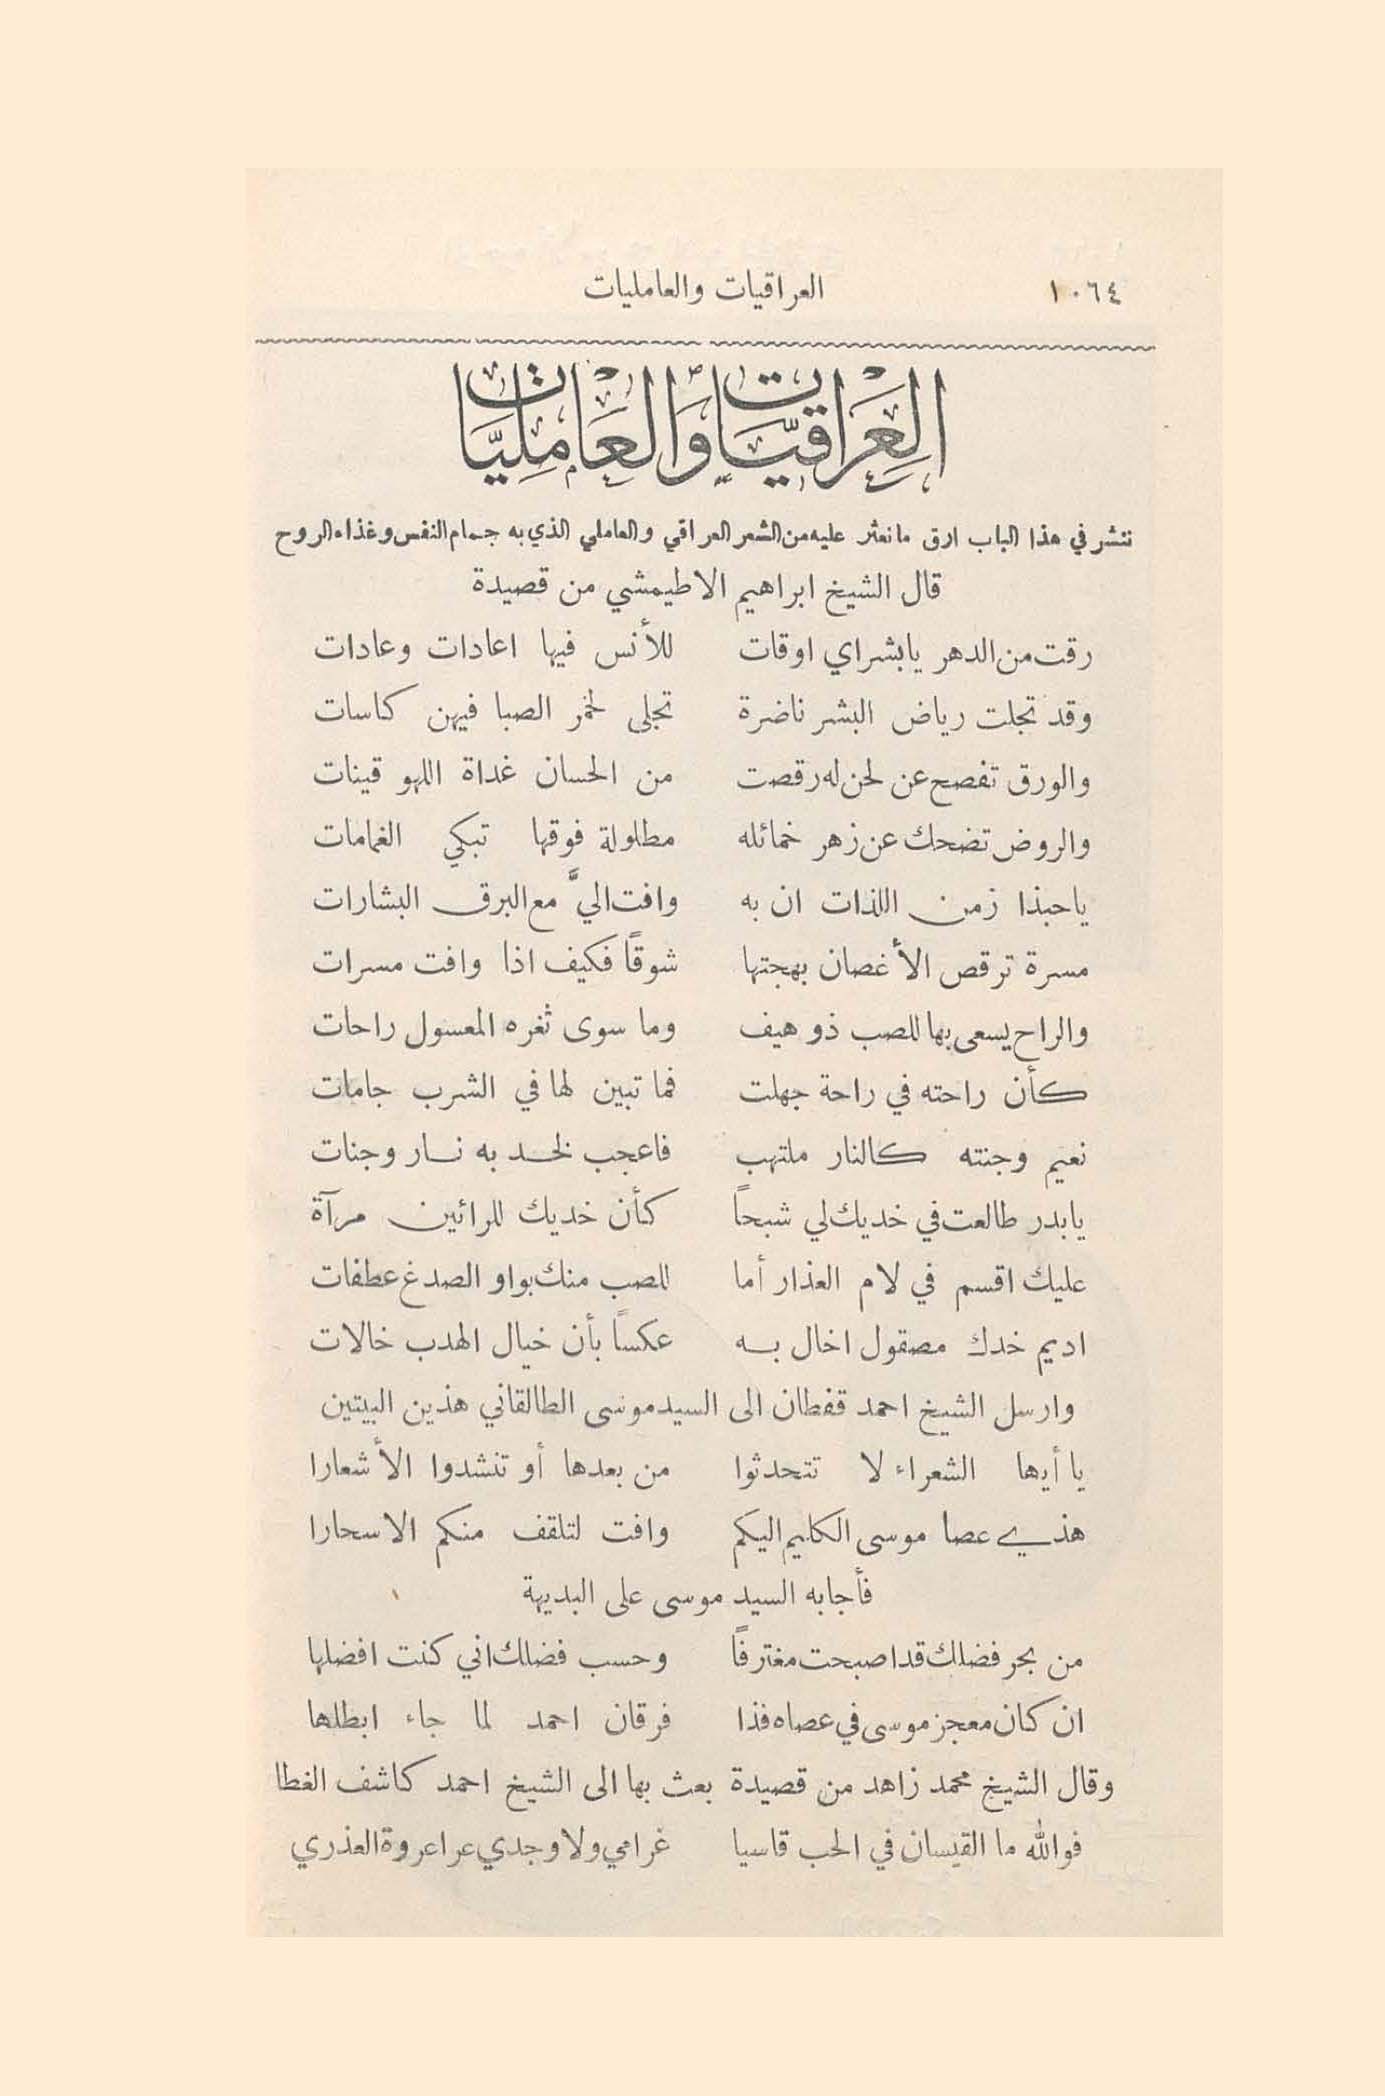 ١٠٦٤ العراقيات والعامليات
العراقيات والعامليات
ننشر في هذا الباب ارق ما نعثر عليه من الشعر العراقي والعاملي الذي به جمام النفس وغذاء الروح
قال الشيخ ابراهيم الاطيمشي من قصيدة
رقت من الدهر يابشراي اوقات للأنس فيها اعادات وعادات
وقد تجلت رياض البشر ناضرة تجلى لخمر الصبا فيهن كاسات
والورق تفصح عن لحن له رقصت من الحسان غداة اللهو قينات
والروض تضحك عن زهر خمائله مطلولة فوقها تبكي الغمامات
ياحبذا زمن اللذات ان به وافت اليَّ مع البرق البشارات
مسرة ترقص الأغصان بهجتها شوقاً فكيف اذا وافت مسرات
والراح يسعى بها للصب ذو هيف وما سوى ثغره المعسول راحات
كأن راحته في راحة جهلت فما تبين لها في الشرب جامات
نعيم وجنته كالنار ملتهب فاعجب لخد به نار وجنات
يابدر طالعت في خديك لي شبحاً كأن خديك للرائين مرآة
عليك اقسم في لام العذار أما للصب منك بواو الصدغ عطفات
اديم خدك مصقول اخال به عكساً بأن خيال الهدب خالات
وارسل الشيخ احمد قفطان الى السيد موسى الطالقاني هذين البيتين
يا أيها الشعراء لا تتحدثوا من بعدها أو تنشدوا الأشعارا
هذي عصا موسى الكليم اليكم وافت لتلقف منكم الاسحارا
فأجابه السيد موسى على البديهة
من بحر فضلك قد اصبحت مغترفاً وحسب فضلك اني كنت افضلها
ان كان معجز موسى في عصاه فذا فرقان احمد لما جاء ابطلها
وقال الشيخ محمد زاهد من قصيدة بعث بها الى الشيخ احمد كاشف الغطا
فوالله ما القيسان في الحب قاسيا غرامي ولا وجدي عرا عروة العذري